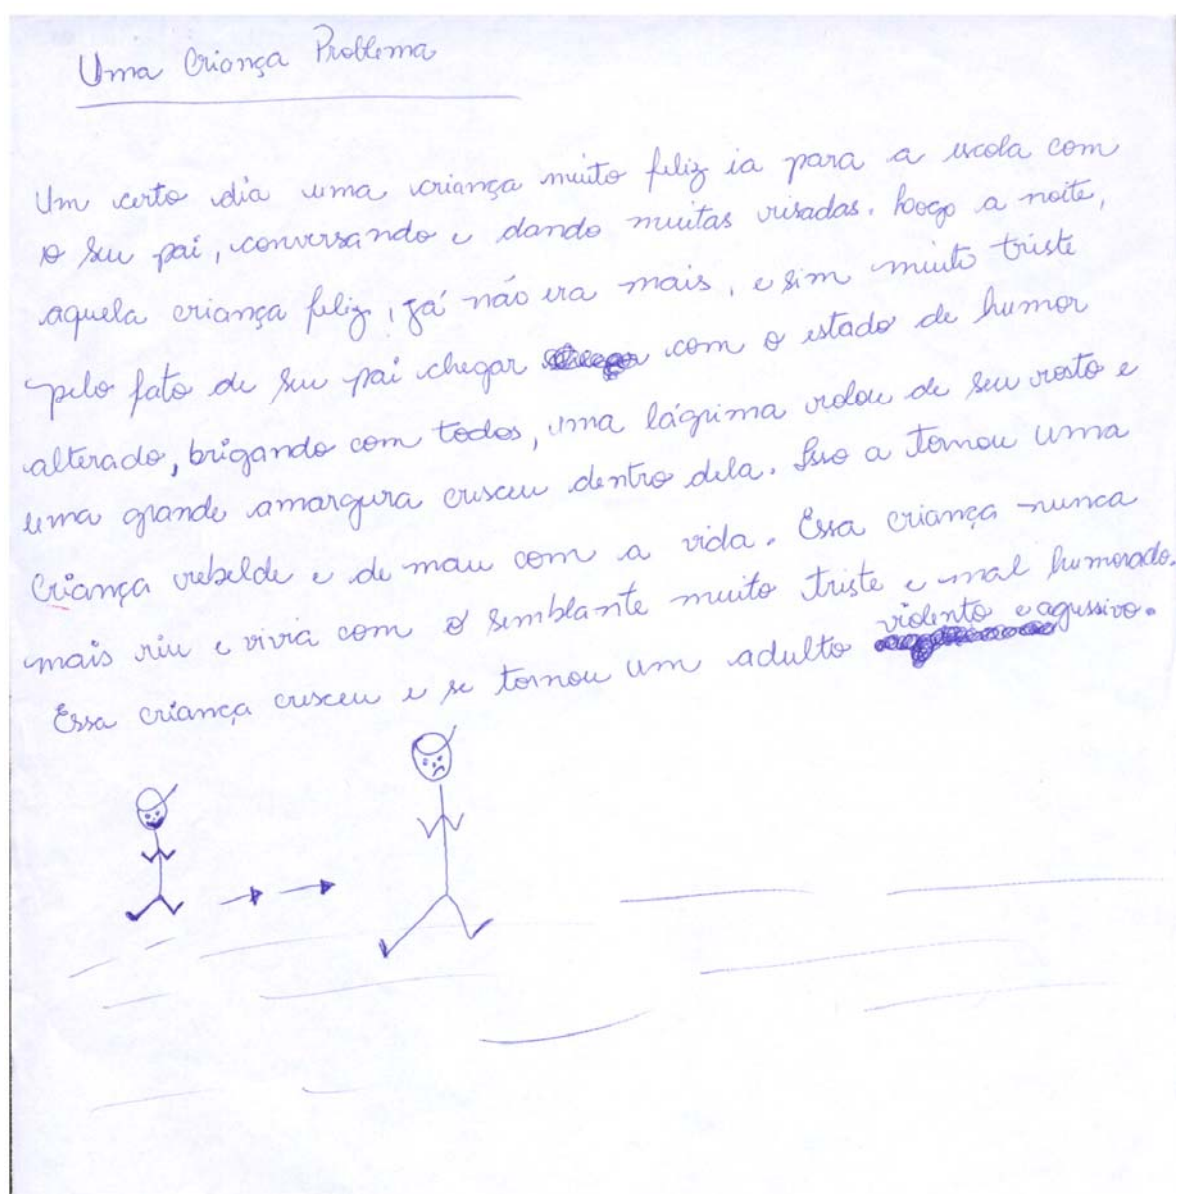 Uma Criança Problema
Um certo dia uma criança muito feliz ia para a escola com
o seu pai, conversando e dando muitas risadas. Logo a noite,
aquela criança feliz, já não era mais, e sim muito triste
pelo fato de seu pai chegar com o estado de humor
alterado, brigando com todos, uma lágrima rolou de seu rosto e
uma grande amargura cresceu dentro dela. Isso a tornou uma
Criança rebelde e de mau com a vida. Essa criança nunca
mais riu e vivia com o semblante muito triste e mal humorado.
Essa criança cresceu e se tornou um adulto violento e agressivo.